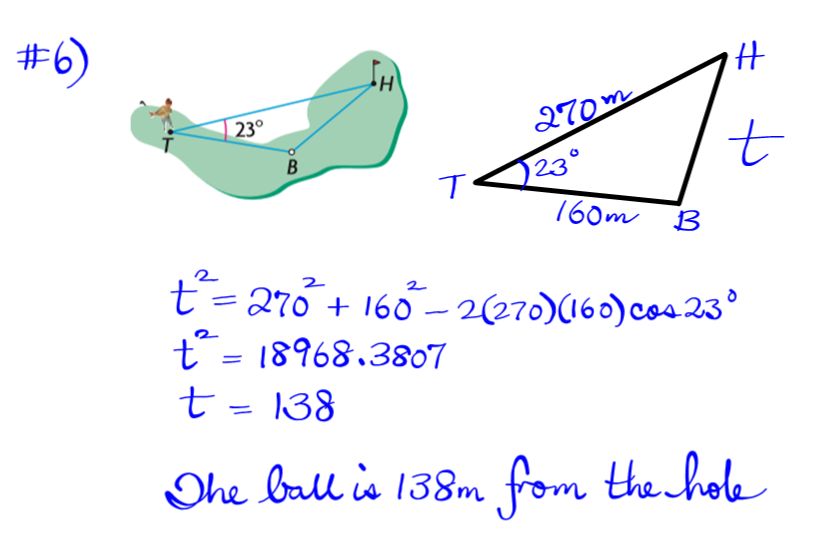 #6)
H
23°
T
B
H
270m
t
23°
T
160m
B
t² = 270² + 160² - 2(270)(160)cos23°
t² = 18968.3807
t = 138
The ball is 138m from the hole